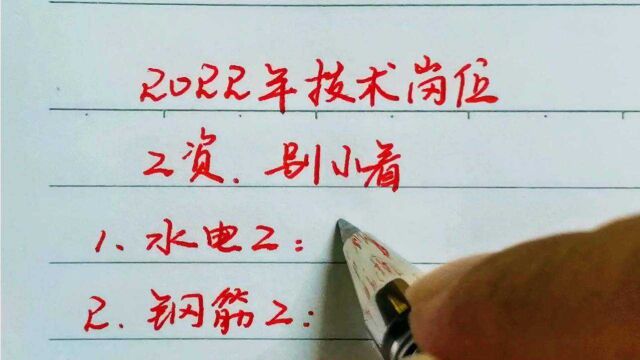 2022年技术岗位
工资.别小看
1、水电工:
2.钢筋工: